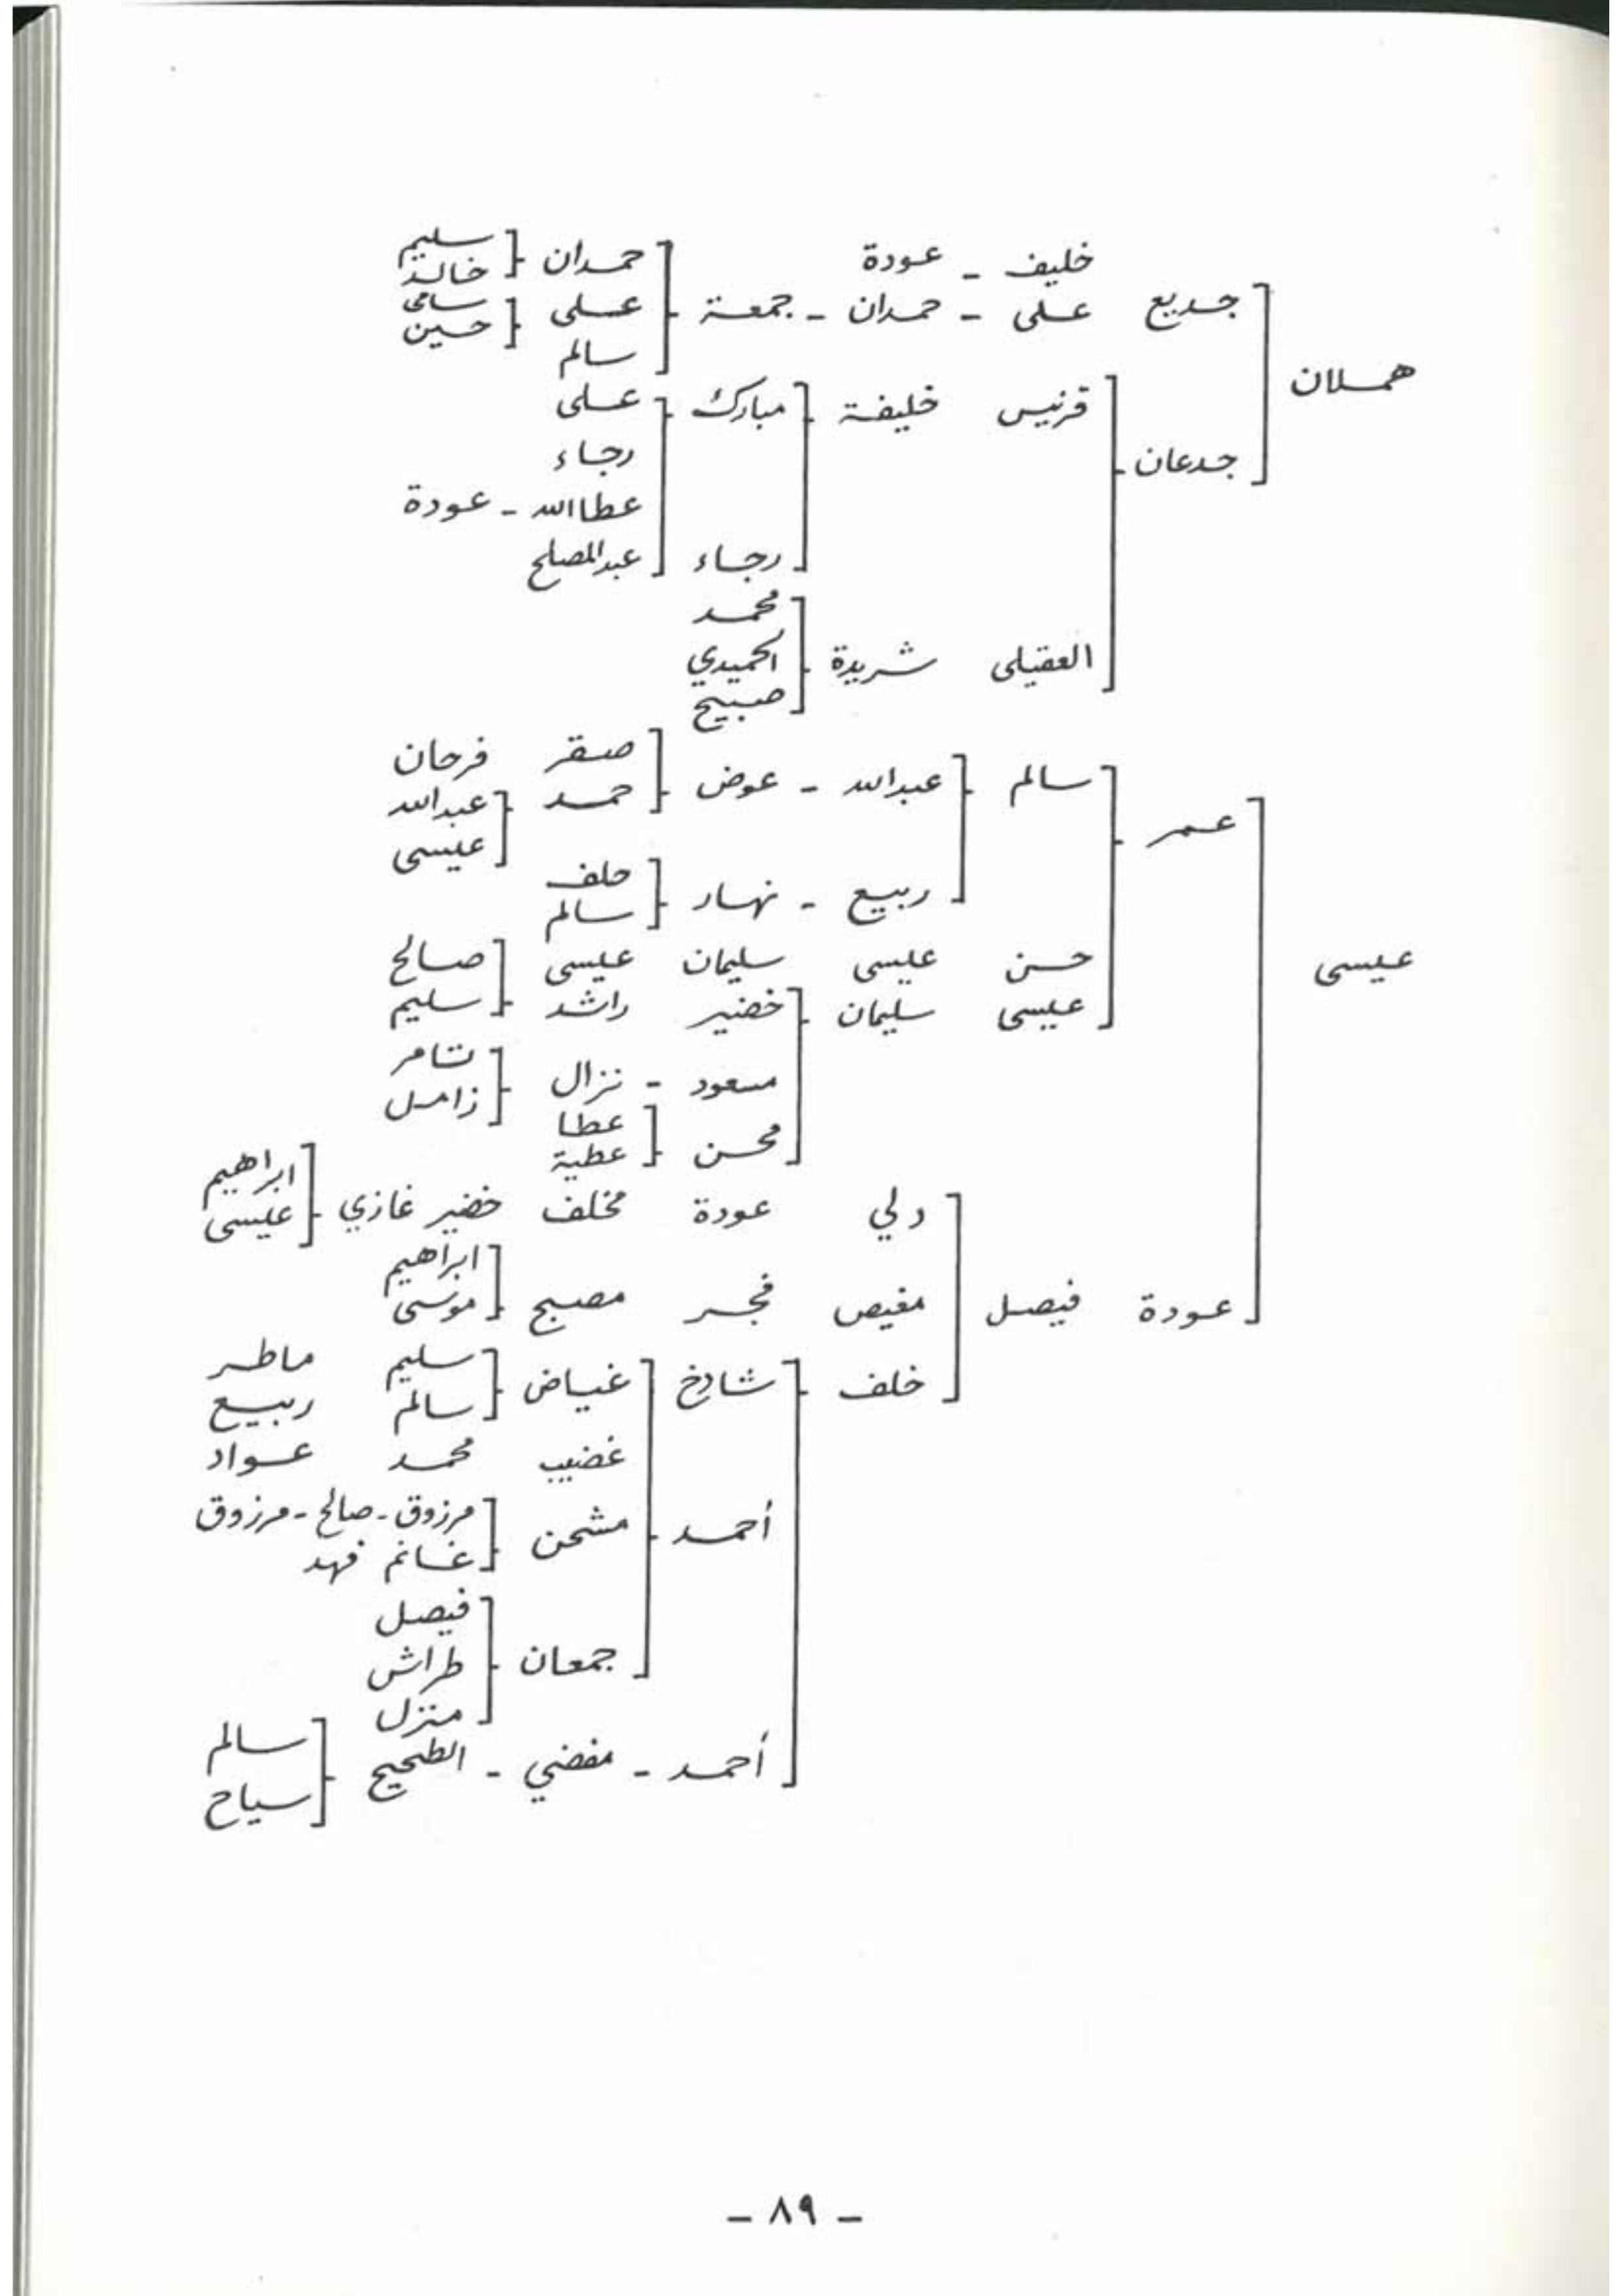 خليف - عودة
حمدان سليم
خالد
هملان جديع على - حمدان - جمعة على سامى
حسين
سالم
جدعان قرنيس خليفة مبارك على
رجاء
عطا الله - عودة
رجاء عبدالمصلح
محمد
العقيلى شريدة الحميدي
صبيح
عيسى عمر سالم عبدالله - عوض صقر فرحان
حمد عبدالله
عيسى
ربيع - نهار خلف
سالم
حسن عيسى سليمان عيسى صالح
عيسى سليمان خضير راشد سليم
مسعود - نزال ثامر
زامل
محسن عطا
عطية
دلي عودة مخلف خضير غازي ابراهيم
عيسى
عودة فيصل مغيص فجر مصبح ابراهيم
موسى
خلف شادخ غياض سليم ماطر
سالم ربيع
غضيب محمد عواد
أحمد مشحن مرزوق - صالح - مرزوق
غانم فهد
جمعان فيصل
طراش
منزل
أحمد - مفضي - الطحيح سالم
سياح
- ٨٩ -